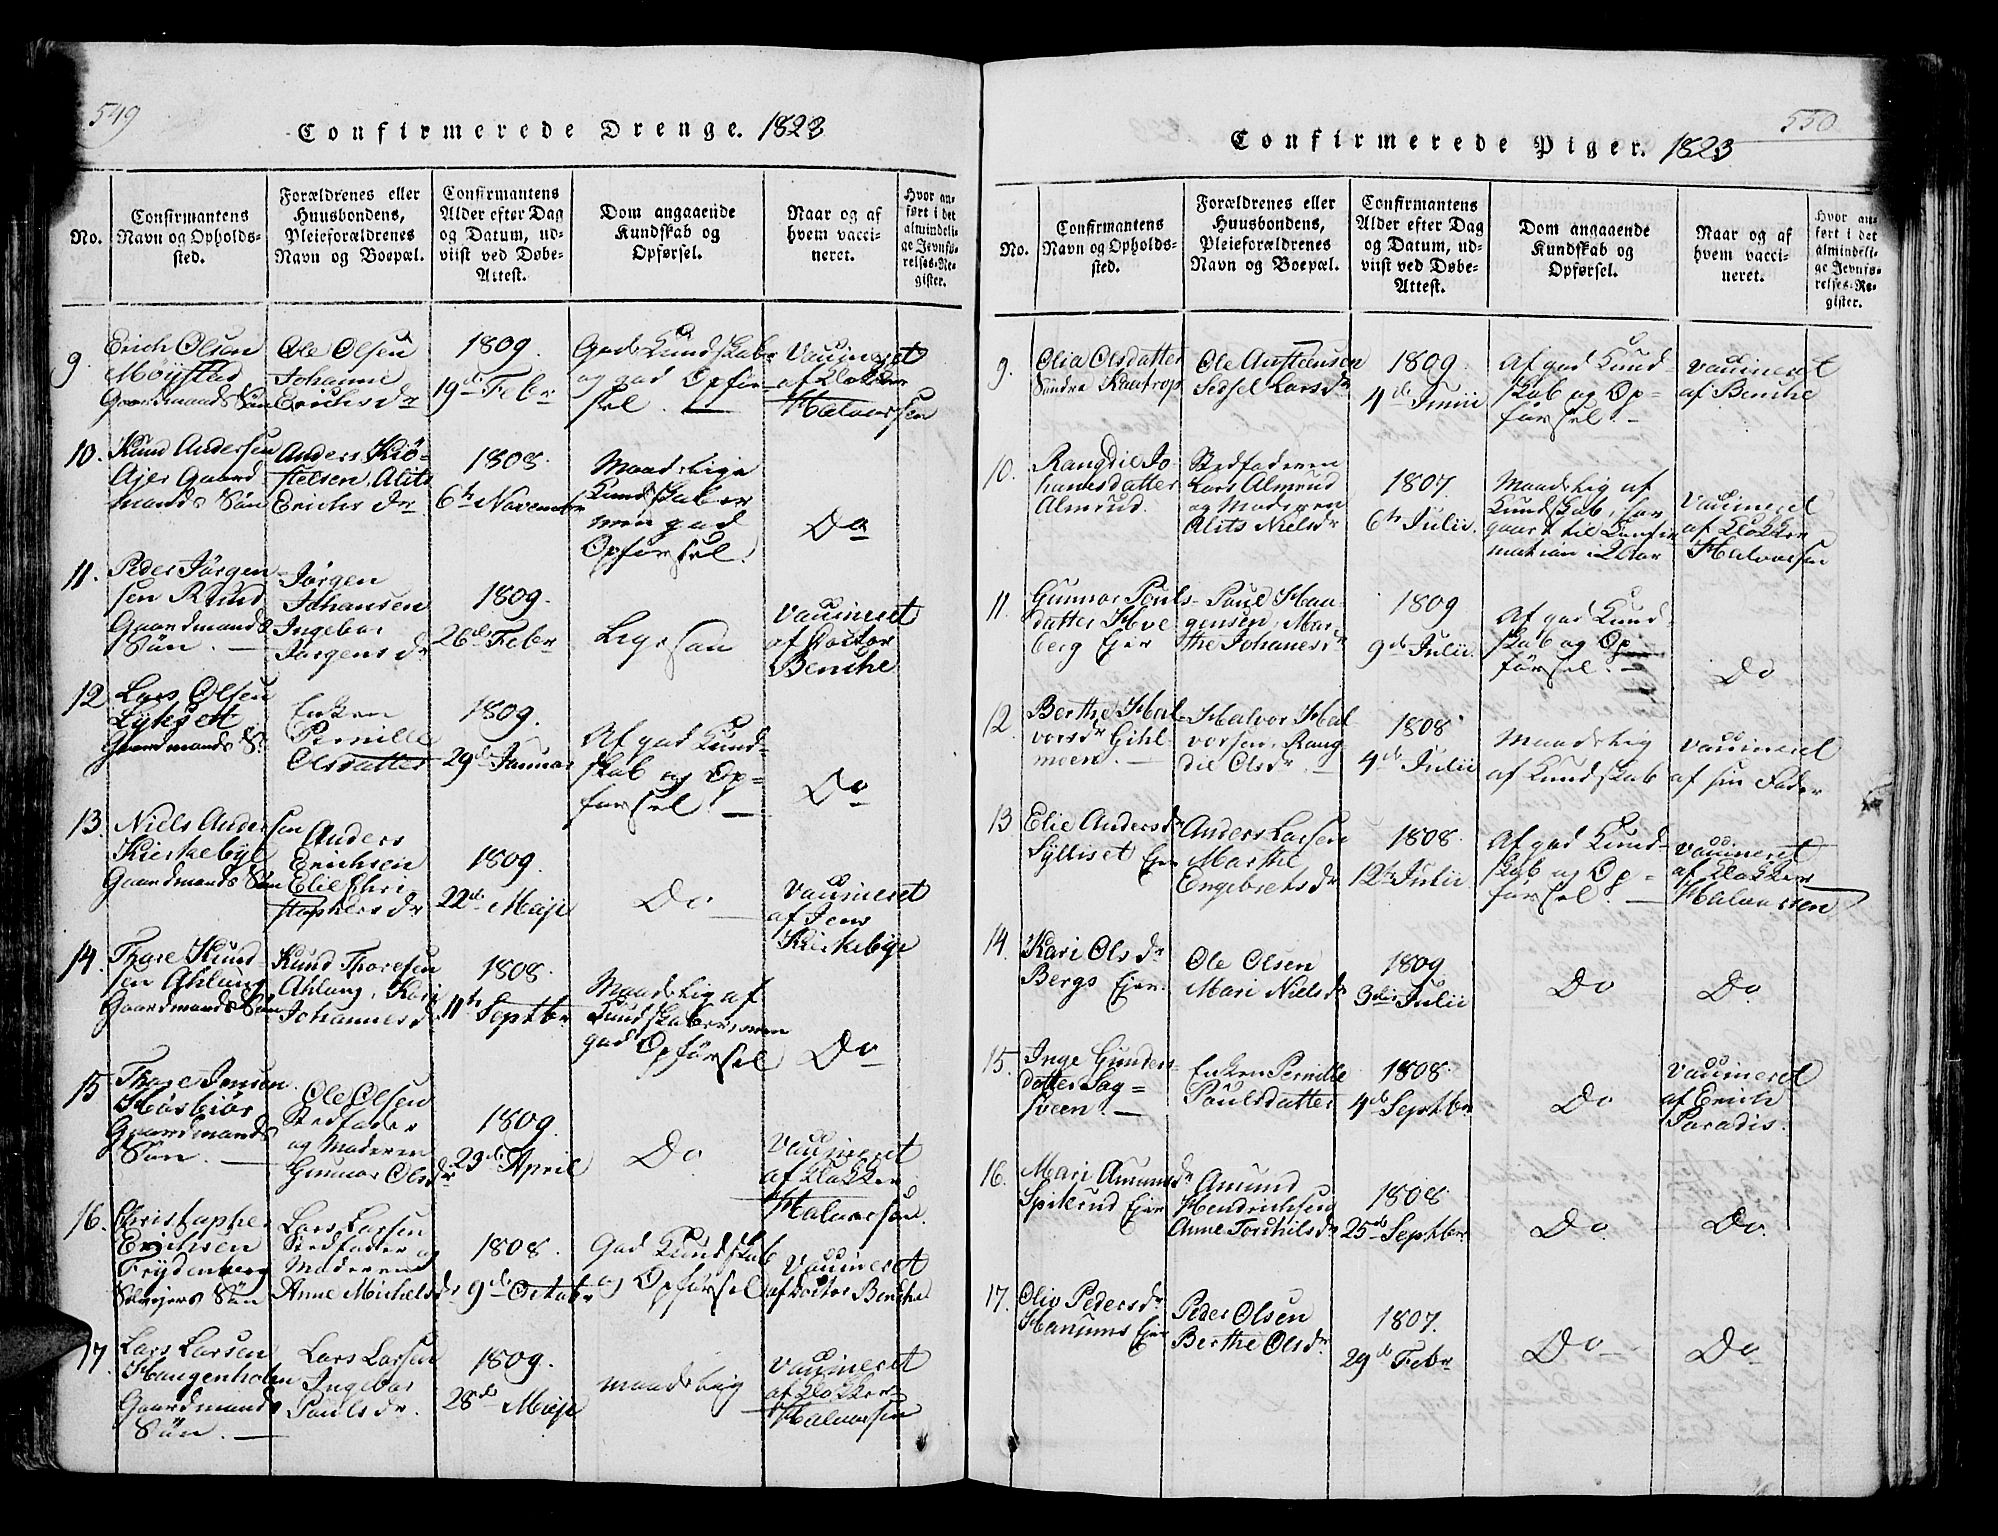 549
Confirmerede Drenge. 1823
No.
Confirmantens
Navn og Opholds-
sted.
Forældrenes eller
Huusbondens,
Pleieforældrenes
Navn og Boepæl.
Confirmantens
Alder efter Dag
og Datum, ud-
viist ved Døbe-
Attest.
Dom angaaende
Kundskab og
Opførsel.
Naar og af
hvem vacci-
neret.
Hvor an-
ført i det
almindeli-
ge Jevnfø-
relses-Re-
gister.
9.
Erich Olsen
Möystad
Gaardmands Sön
Ole Olsen
Johanne
Erichs dr
1809.
19de Febr
God Kundskab
og god Opför-
sel.
Vaccineret
af Klokker
Halvorsen
10.
Knud Andersen
Ajer Gaard
mands Sön
Anders Kiö-
stelsen, Alits
Erichs dr
1808.
6te November
Maadelige
Kundskaber
men god
Opförsel.
Do
11.
Peder Jörgen
sen Ruud
Gaardmands
Sön.
Jörgen
Johansen
Ingebor
Jörgens dr
1809.
26de Febr
Ligesaa
Vaccineret
af Doctor
Benche
12.
Lars Olsen
Lykset
Gaardmands S.
Enken
Pernille
Olsdatter
1809.
29de Januar
Af god Kund-
skab og Op-
försel.
Do
13.
Niels Andersen
Kirkebye
Gaardmands Sön
Anders
Erichsen
Elie Chri
stophers dr
1809.
22de Maje
Do
Vaccineret
af Jens
Kirkebye
14.
Thore Knud
sen Ahlung
Gaardmands Sön
Knud Thoresen
Ahlung, Kari
Johannes dr
1808.
11te Septbr
Maadelig af
Kundskaber, men
god Opförsel
Do
15
Thore Jensen
Gaardmands
Sön.
Ole Olsen
Stedfader
og Moderen
Gunnor Ols dr
1809.
23de April
Do
Vaccineret
af Klokker
Halvorsen.
16.
Christopher
Erichsen
Frydenberg
Selvejers Sön
Lars Larsen
Stedfader og
Moderen
Anne Michels dr
1808.
9de Octobr
God Kundskab
og Opförsel
Vaccineret
af Doctor Benche
17
Lars Larsen
Haugenholm
Gaardmands
Sön.
Lars Larsen
Ingebor
Pouls dr.
1809.
28de Maje
maadelig
Vaccineret
af Klokker
Halvorsen
550
Confirmerede Piger. 1823
No.
Confirmantens
Navn og Opholds-
sted.
Forældrenes eller
Huusbondens,
Pleieforældrenes
Navn og Boepæl.
Confirmantens
Alder efter Dag
og Datum, ud-
viist ved Døbe-
Attest.
Dom angaaende
Kundskab og
Opførsel.
Naar og af
hvem vacci-
neret.
Hvor an-
ført i det
almindeli-
ge Jevnfø-
relses-Re-
gister.
9.
Olia Olsdatter
Söndre
Ole Austensen
Sidsel Lars dr
1809.
4de Junii
Af god Kund-
skab og Op-
försel.
Vaccineret
af Benche
10.
Rangdil Jo-
hanesdatter
Almrud.
Stedfaderen
Lars Almrud
og Moderen
Alits Niels dr
1807.
6te Julii.
Maadelig af
Kundskab, for
gaart til Confir
mation i 2 Aar
Vaccineret
af Klokker
Halvorsen
11.
Gunnor Pouls-
datter Hve
berg Ejer
Poul Hau-
gensen, Mar-
the Johanes dr
1809
9de Julii.
Af god Kund-
skab og Op-
försel.
Do
12.
Berthe Hal-
vors dr Gihl-
moen.
Halvor Hal
vorsen, Rang-
dil Ols dr.
1808
4de Julii
Maadelig
af Kundskab
Vaccineret
af sin Fader
13
Elie Anders dr
Sylliset Ejer
Anders Larsen
Marthe
Engebrets dr
1808.
12te Julii
Af god Kund-
skab og Op-
försel.
Vaccineret
af Klokker
Halvorsen
14.
Kari Ols dr
Bergs Ejer.
Ole Olsen
Mari Niels dr
1809
3die Julii
Do
Do
15.
Inge Gunders-
datter Sag-
sveen.
Enken Pernille
Poulsdatter
1808.
4de Septbr
Do
Vaccineret
af Erich
Paradis.
16.
Mari Amunds dr
Spikrud Ejer
Amund
Hendrichsen
Anne Torchils dr
1808.
25de Septbr.
Do.
Do.
17.
Oliv Peders dr
Hanums Ejer
Peder Olsen
Berthe Ols dr
1807.
29de Febr
Do
Do